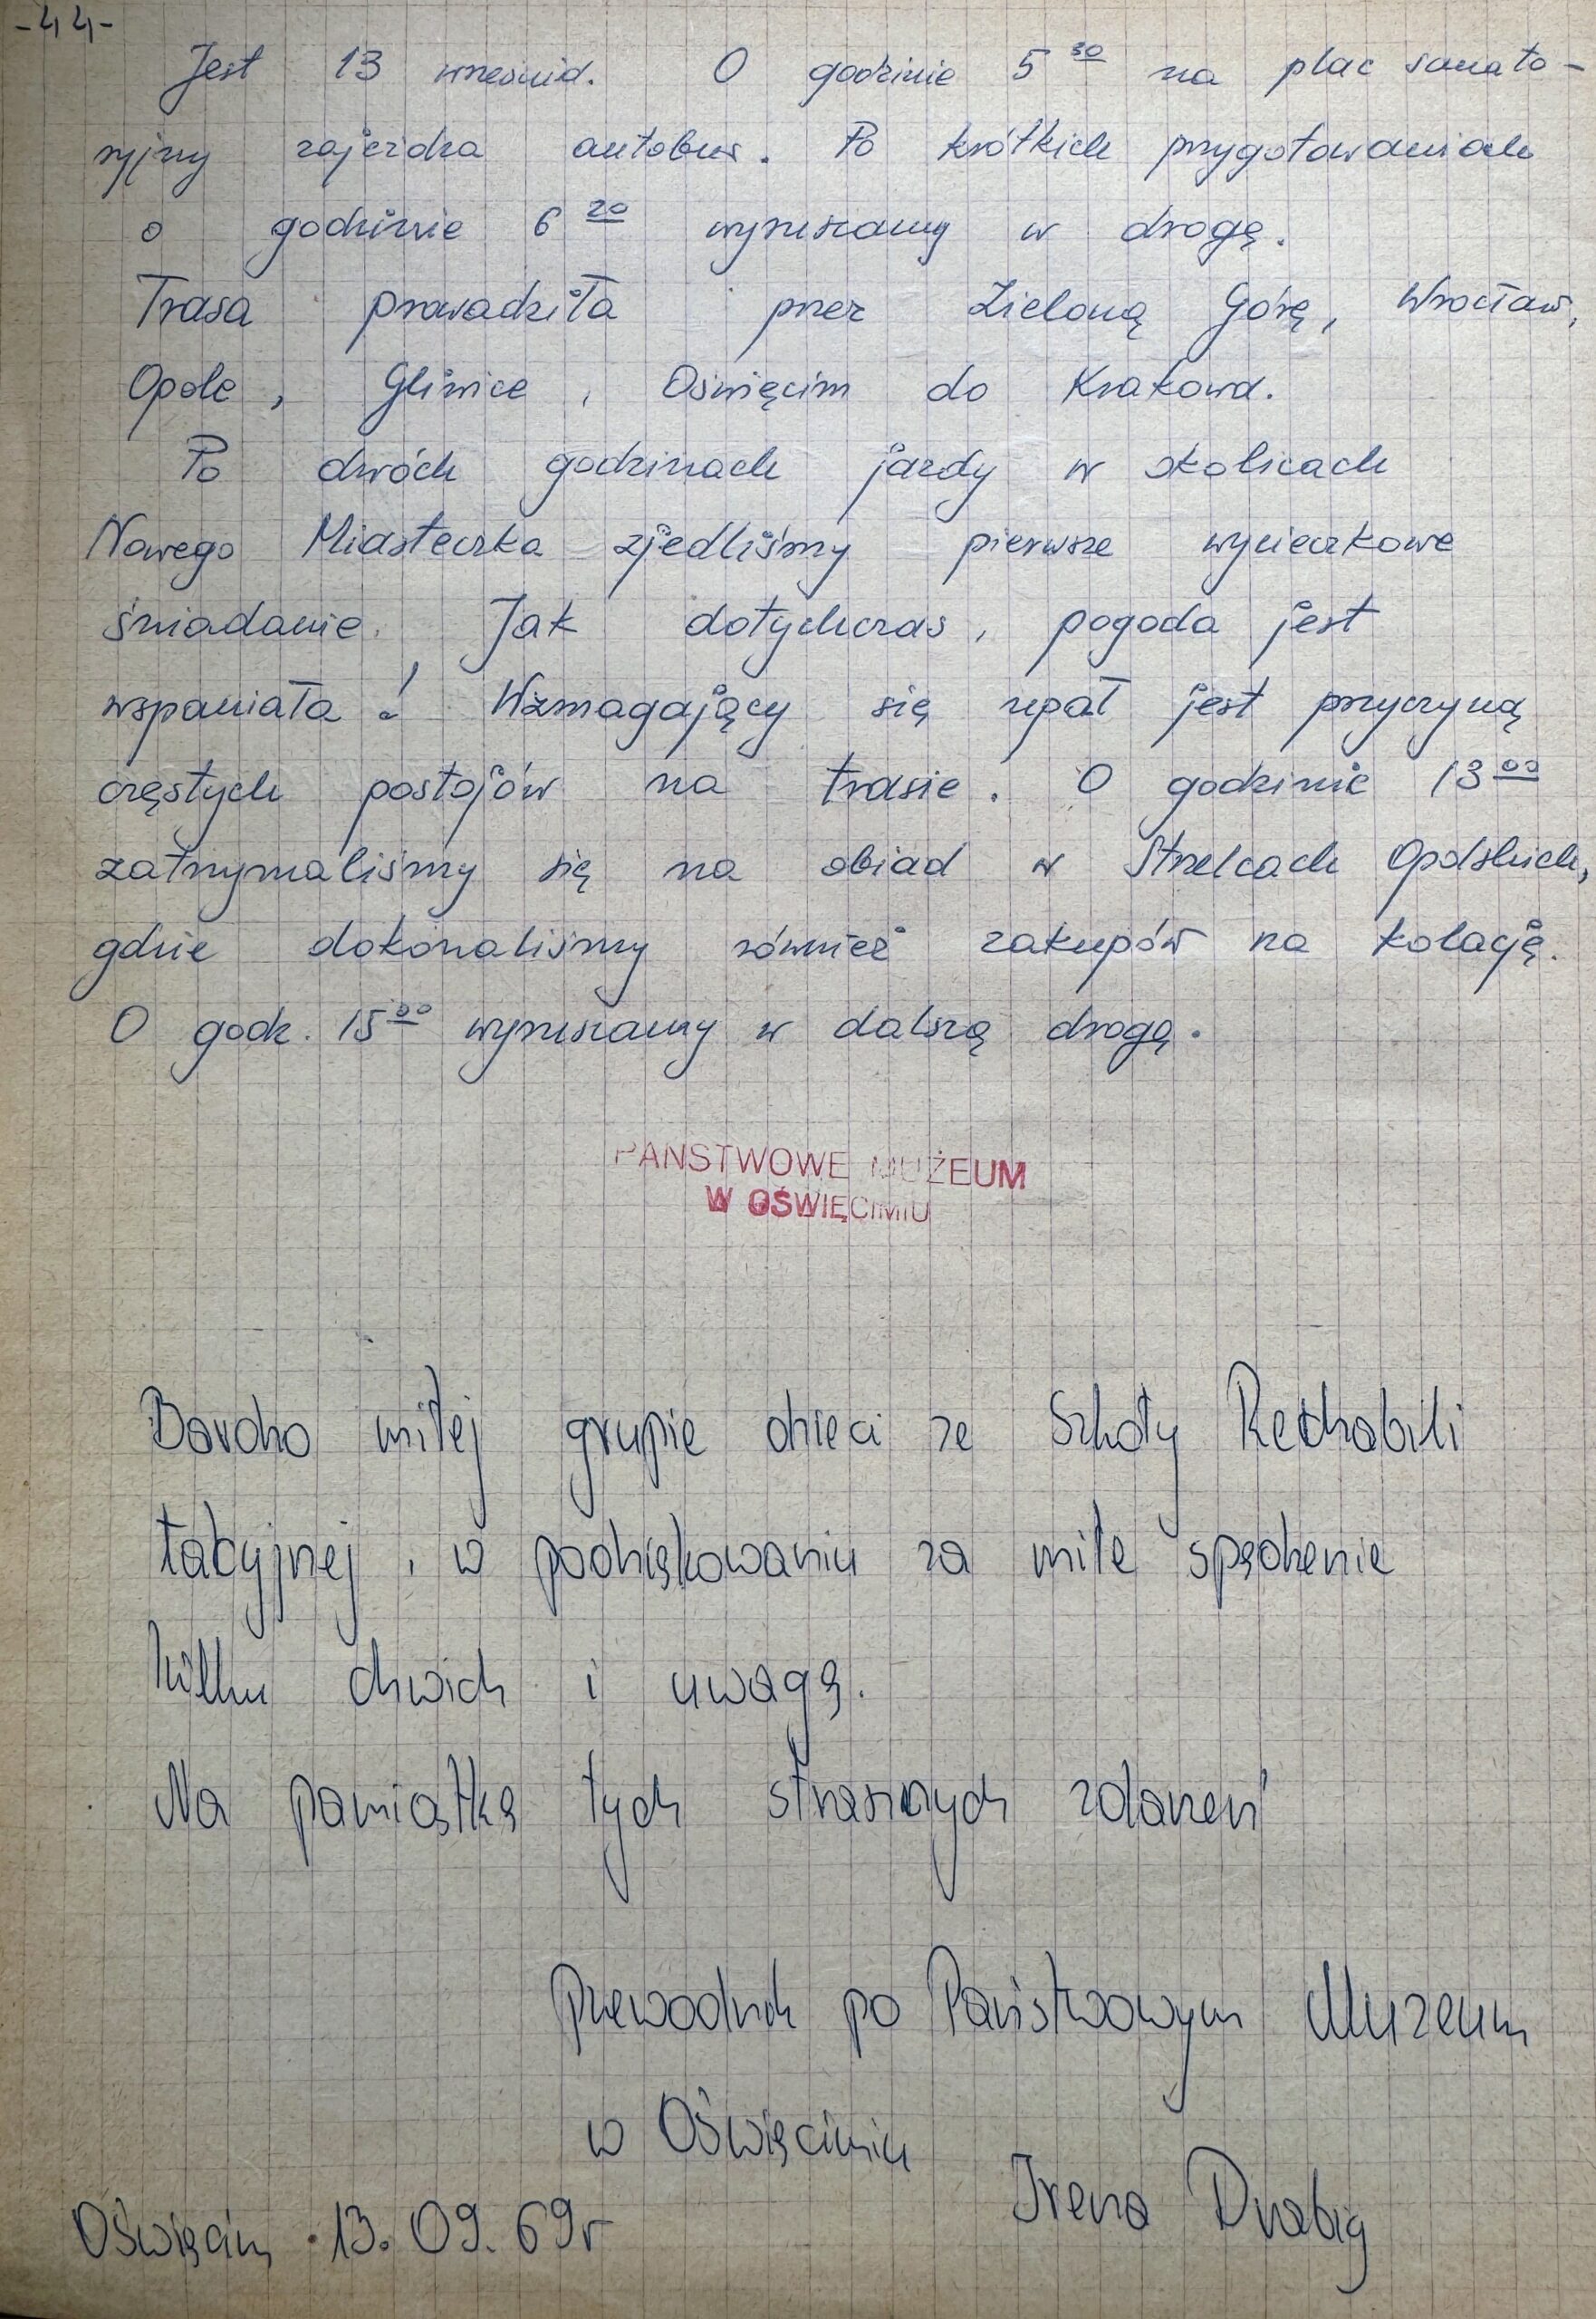 -44-
Jest 13 września. O godzinie 5 30 na plac sanato-
ryjny zajeżdża autobus. Po krótkich przygotowaniach
o godzinie 6 20 wyruszamy w drogę.
Trasa prowadziła przez Zieloną Górę, Wrocław,
Opole, Gliwice, Oświęcim do Krakowa.
Po dwóch godzinach jazdy w okolicach
Nowego Miasteczka zjedliśmy pierwsze wycieczkowe
śniadanie. Jak dotychczas, pogoda jest
wspaniała! Wzmagający się upał jest przyczyną
częstych postojów na trasie. O godzinie 13 00
zatrzymaliśmy się na obiad w Strzelcach Opolskich,
gdzie dokonaliśmy również zakupów na kolację.
O godz. 15 00 wyruszamy w dalszą drogę.
PAŃSTWOWE MUZEUM
W OŚWIĘCIMIU
Bardzo miłej grupie dzieci ze Szkoły Rechabili
tacyjnej, w podziękowaniu za miłe spędzenie
kilku chwich i uwagę.
Na pamiątkę tych strasznych zdarzeń
Przewodnik po Państwowym Muzeum
w Oświęcimiu
Irena Drabig
Oświęcim 13.09.69r